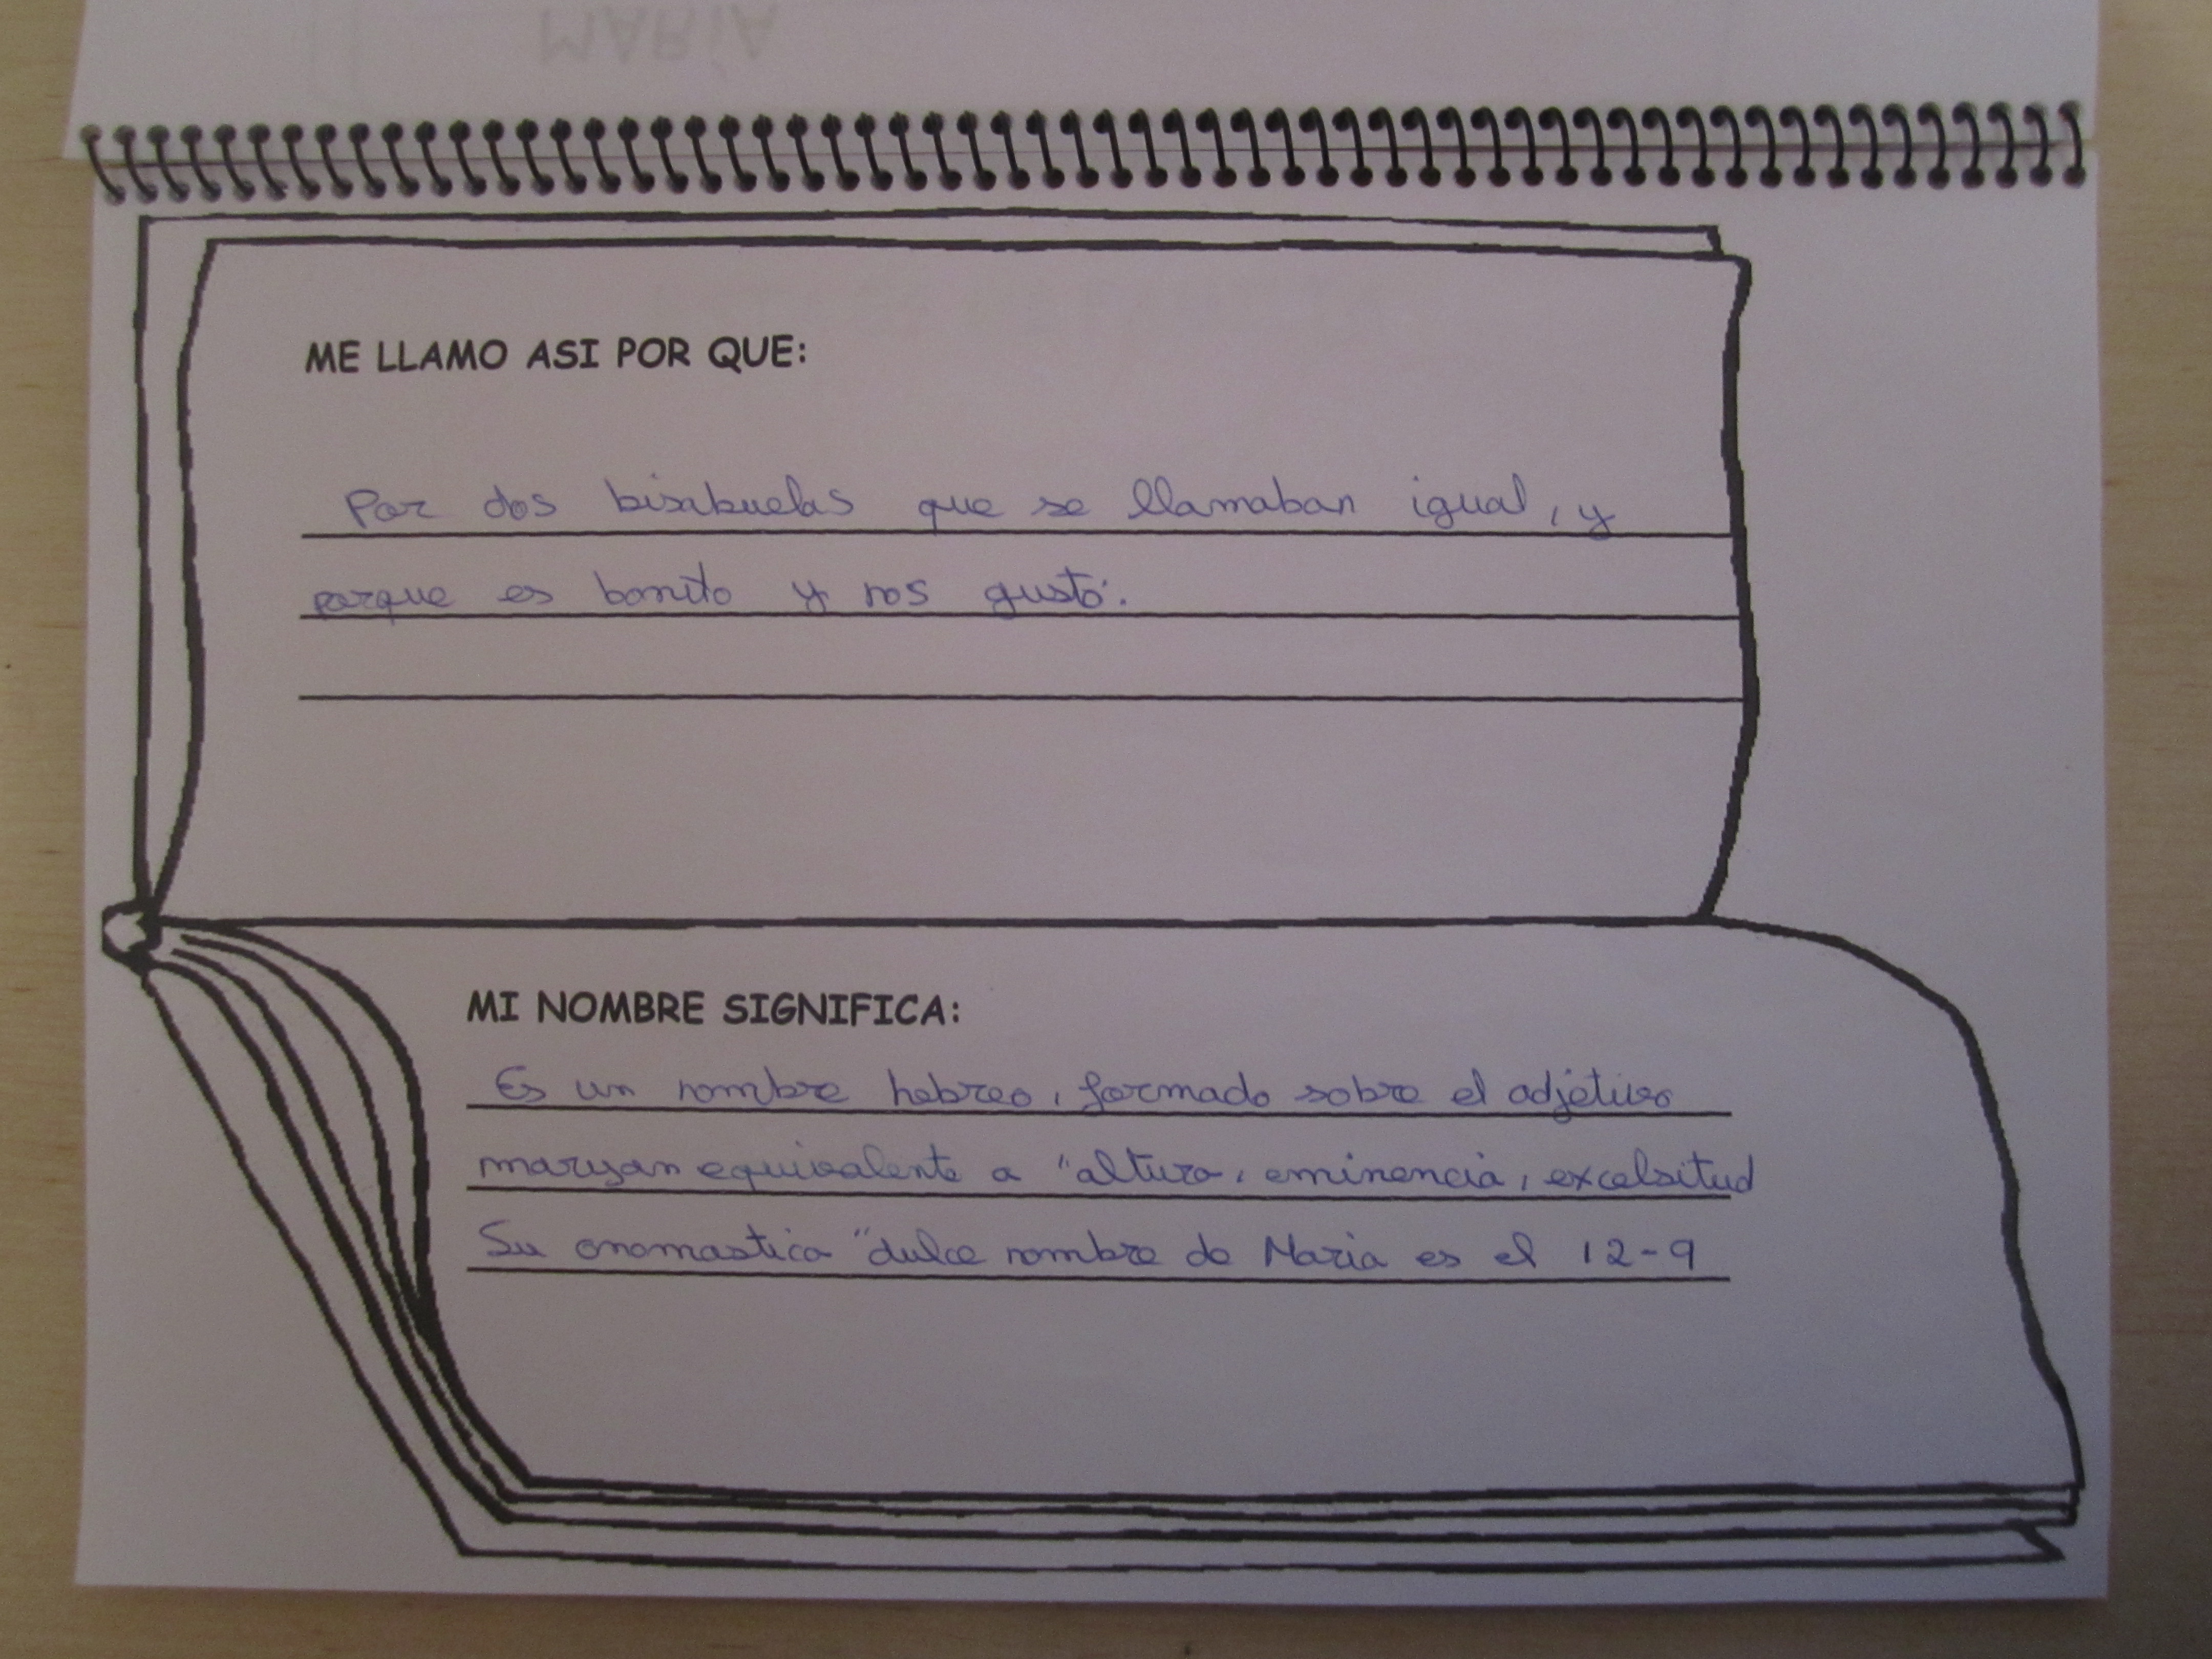 MARÍA
ME LLAMO ASI POR QUE:
Por dos bisabuelas que se llamaban igual, y
porque es bonito y nos gustó.
MI NOMBRE SIGNIFICA:
Es un nombre hebreo, formado sobre el adjetivo
maryan equivalente a "altura, eminencia, excelsitud
Su onomastica "dulce nombre de Maria es el 12-9